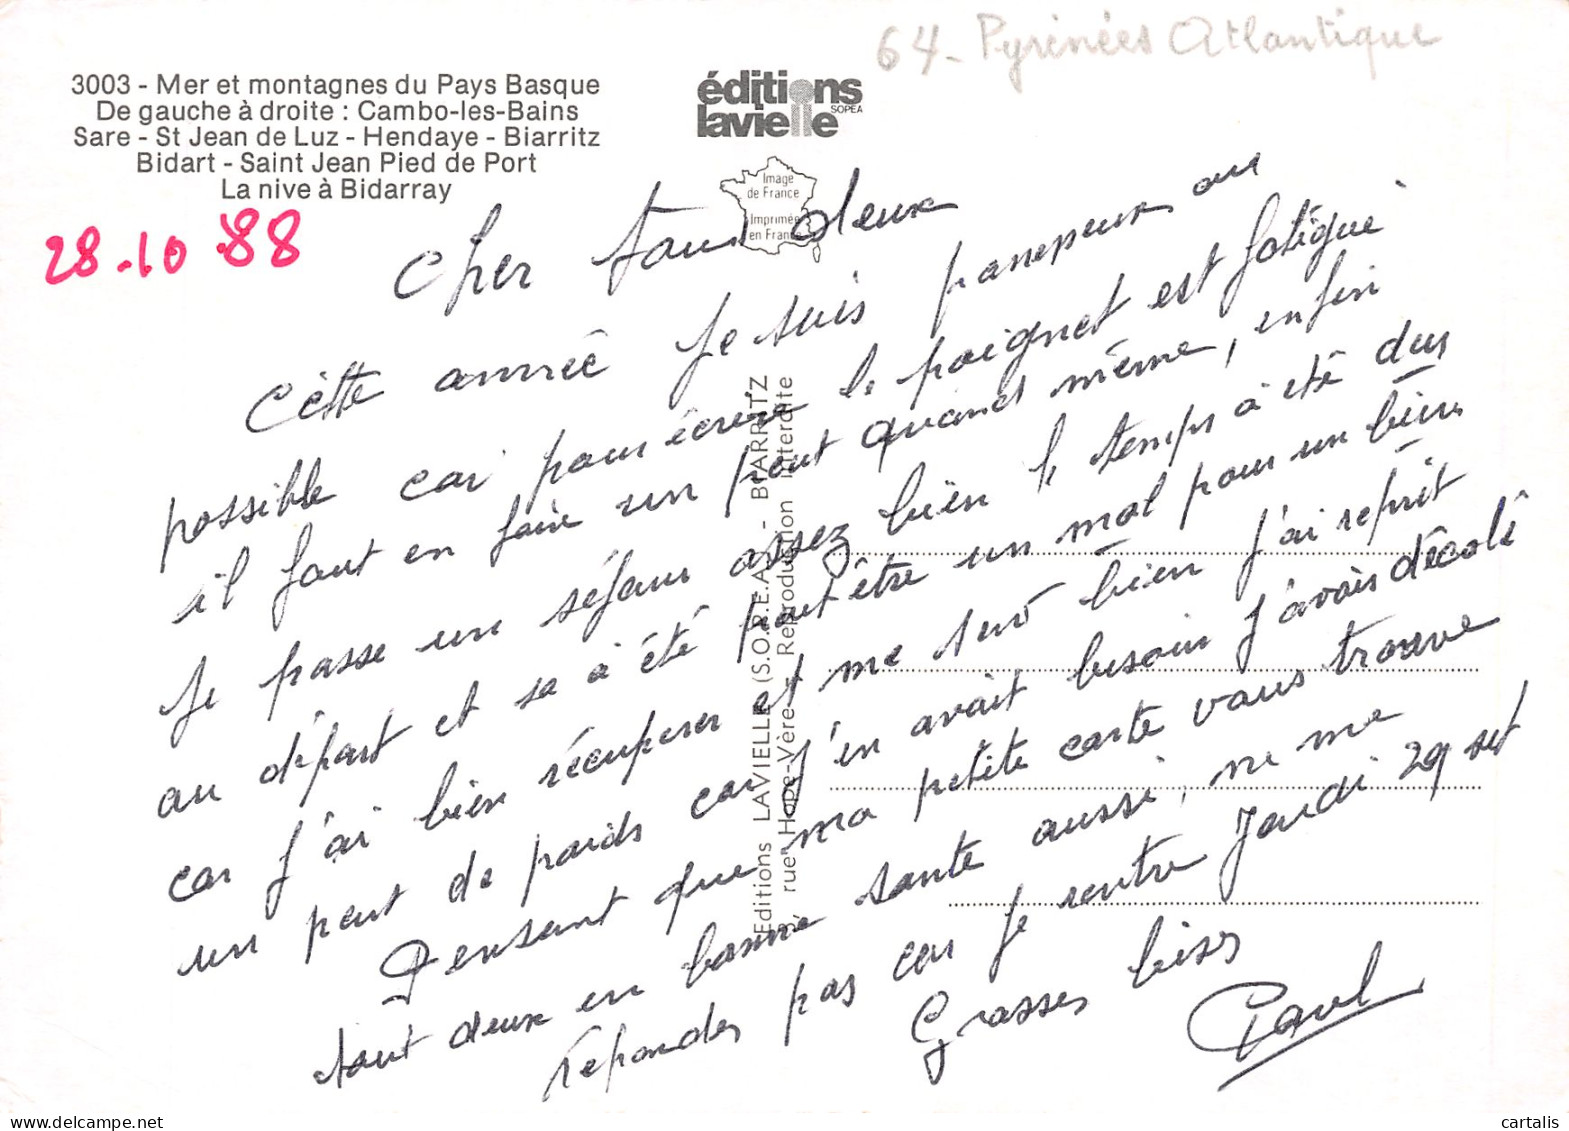 64 - Pyrénées Atlantique
3003 - Mer et montagnes du Pays Basque
De gauche à droite : Cambo-les-Bains
Sare - St Jean de Luz - Hendaye - Biarritz
Bidart - Saint Jean Pied de Port
La nive à Bidarray
éditions
lavielle
SOPEA
Image
de France
Imprimée
en France
28.10.88
Cher tous deux
cètte année je suis paresseux au
possible car pour écrire le poignet est fatigué
il faut en faire un peut quand même, enfin
Je passe un séjour assez bien le temps à été dus
au départ et sa à été peut être un mal pour un bien
car j'ai bien récuperer et me sens bien j'ai reprit
un peut de poids car j'en avait besoin j'avais décolé
Pensant que ma petite carte vous trouve
tout deux en bonne santé aussi, ne me
répondes pas car je rentre Jeudi 29 set
Grasses bises
Paul
Editions LAVIELLE (S.O.R.E.A.) - BIARRITZ
rue Hope-Vère - Reproduction interdite
cartalis